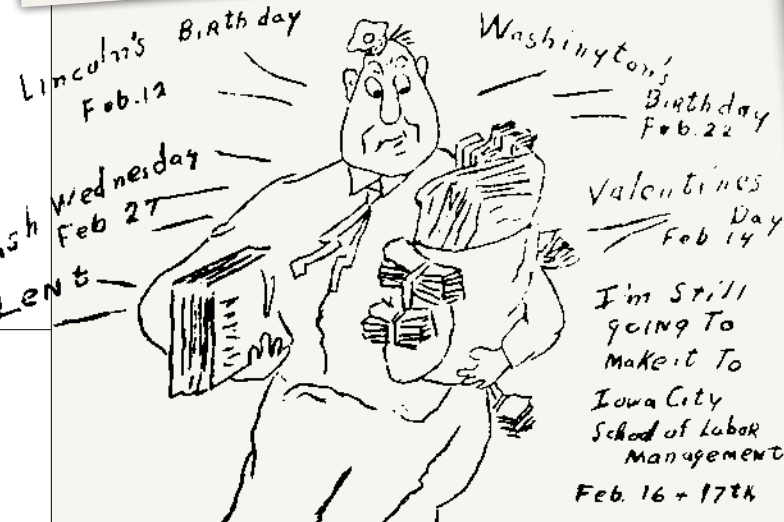 Lincoln's Birthday
Feb. 12
Wednesday
Feb 27
Lent
Washington's
Birthday
Feb. 22
Valentines
Day
Feb 14
I'm Still
going To
make it To
Iowa City
School of Labor
Management
Feb. 16 + 17th